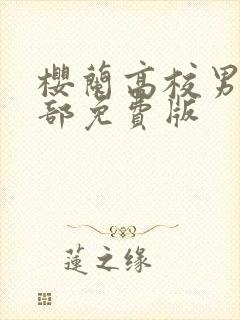 櫻蘭高校男
部免費版
蓮之缘